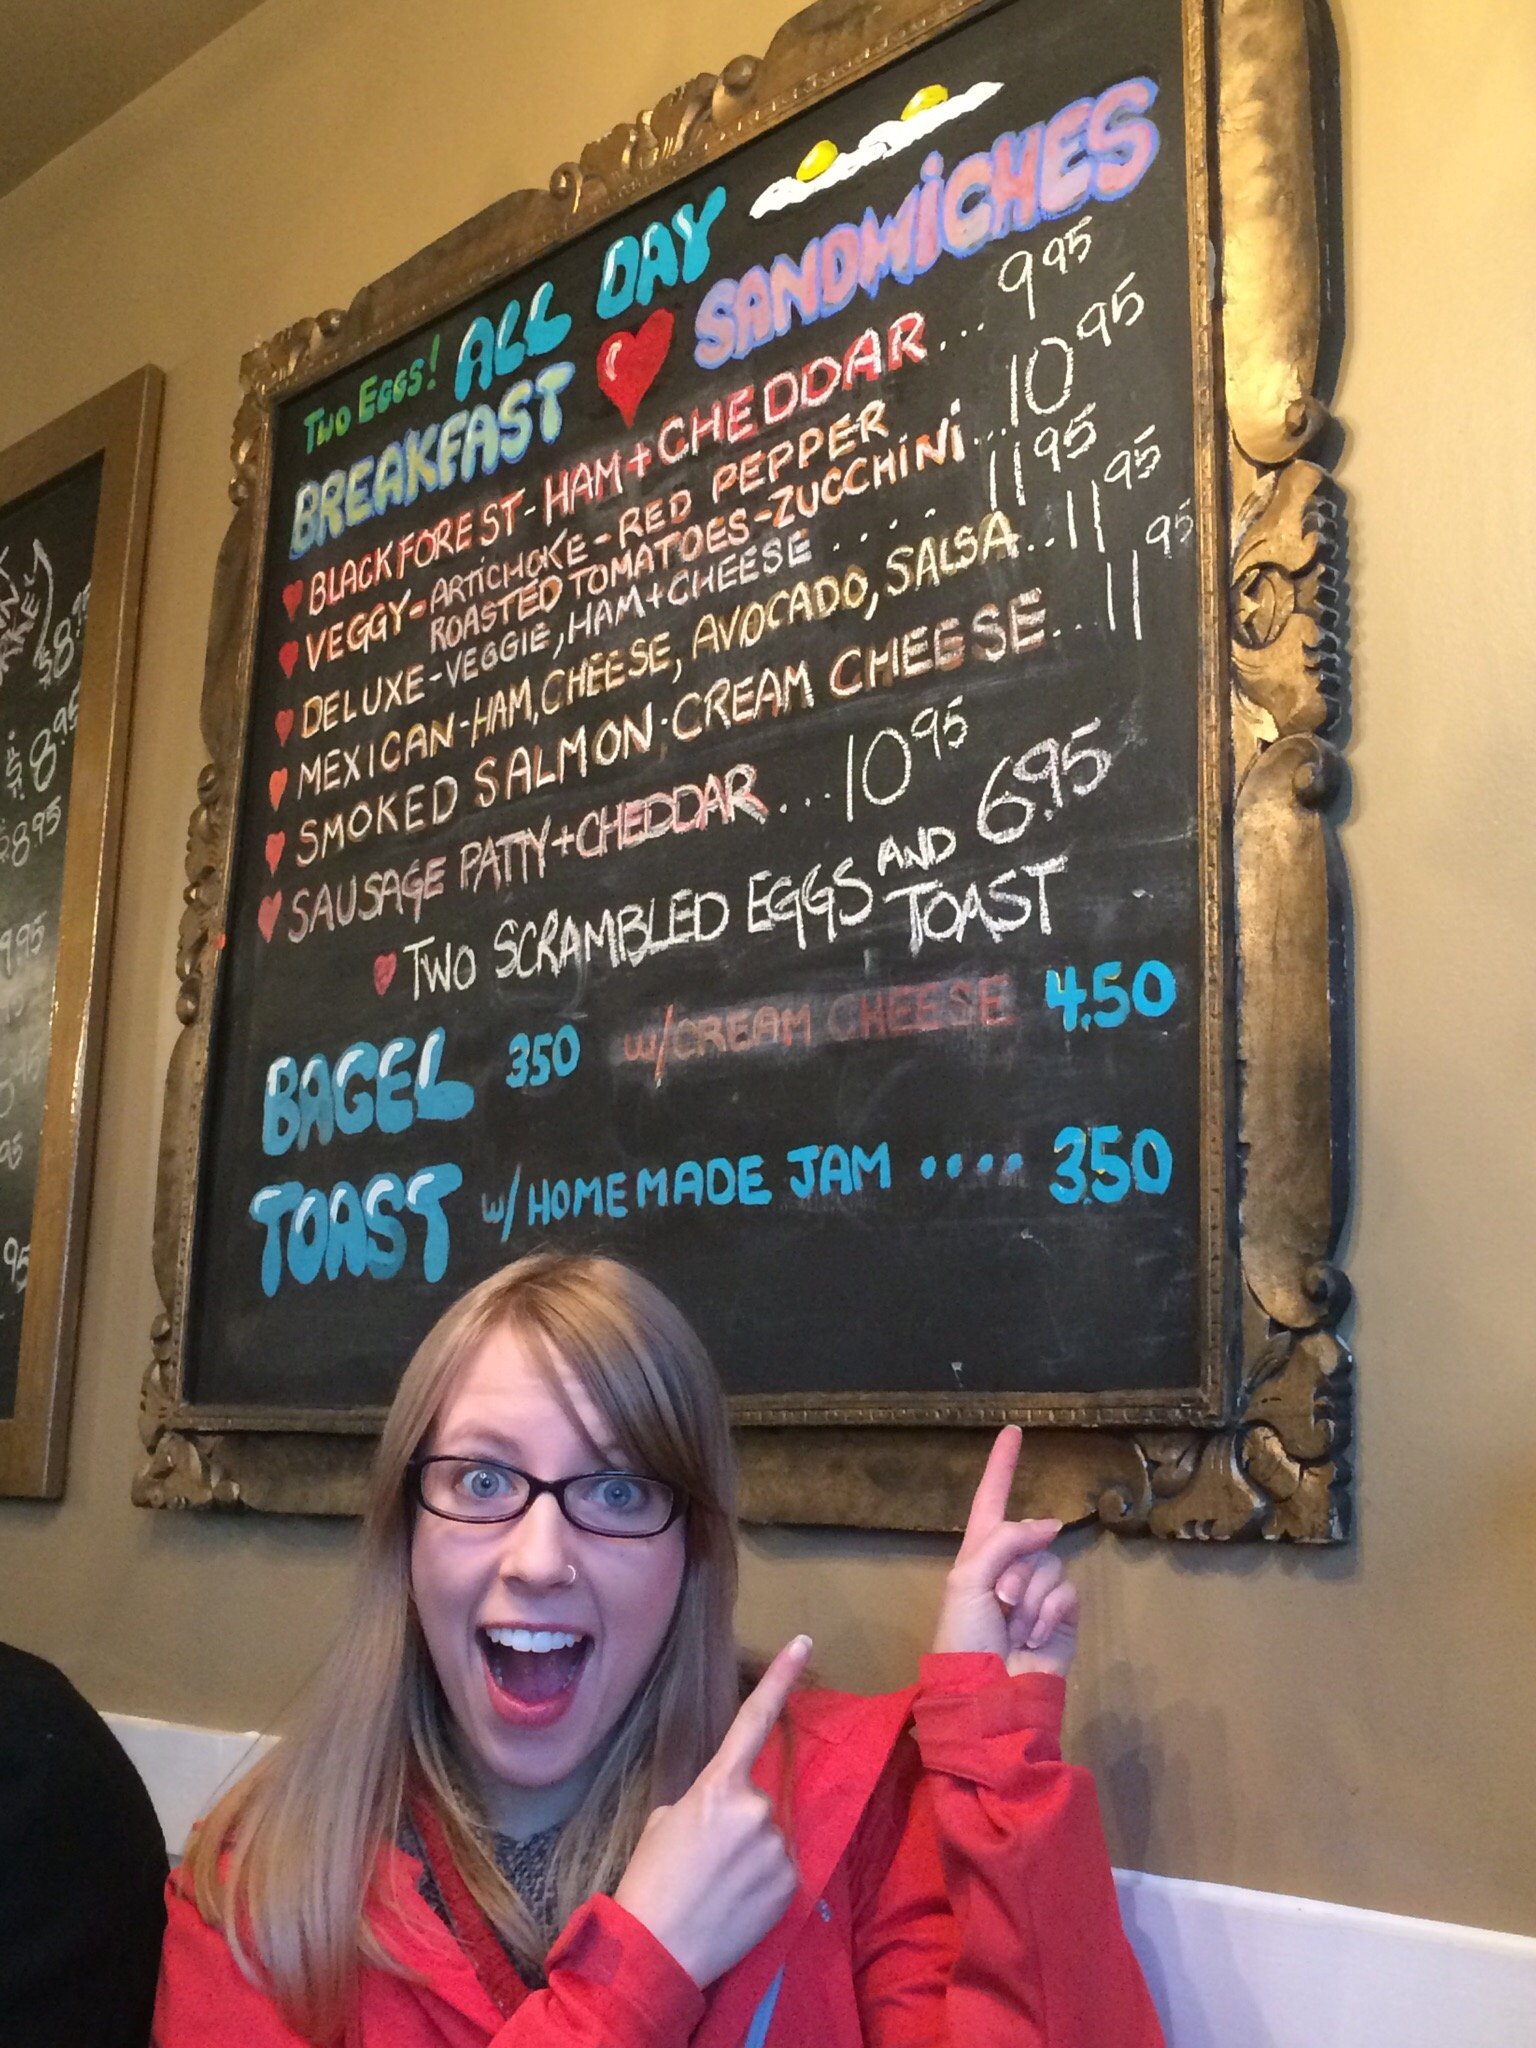 TWO EGGS! ALL DAY
BREAKFAST SANDWICHES
BLACKFOREST-HAM+CHEDDAR... 9 95
VEGGY-ARTICHOKE-RED PEPPER
ROASTED TOMATOES-ZUCCHINI... 10 95
DELUXE-VEGGIE, HAM+CHEESE ..... 11 95
MEXICAN-HAM, CHEESE, AVOCADO, SALSA.. 11 95
SMOKED SALMON·CREAM CHEESE... 11 95
SAUSAGE PATTY+CHEDDAR ...10 95
TWO SCRAMBLED EGGS AND TOAST 6.95
BAGEL 350 w/CREAM CHEESE 4.50
TOAST w/HOMEMADE JAM .... 3.50
$8.95
8.95
8.95
9.95
95
95